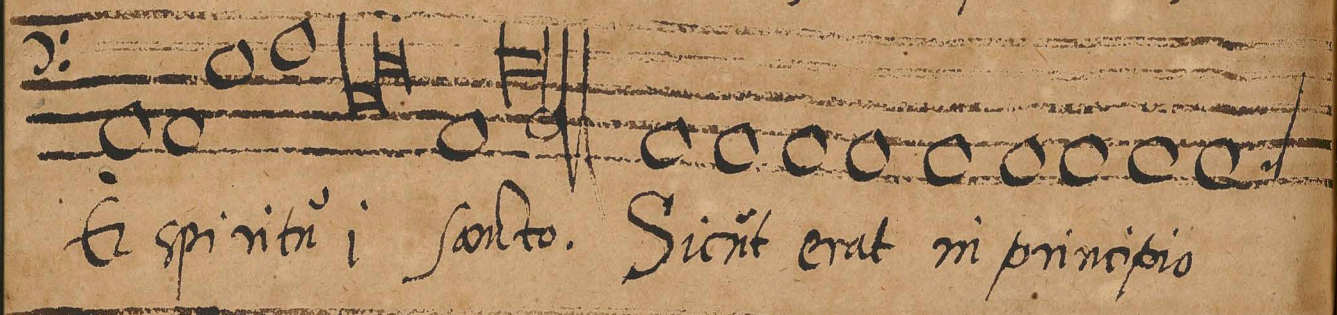 Et spiritŭ i sancto. Sicŭt erat in principio